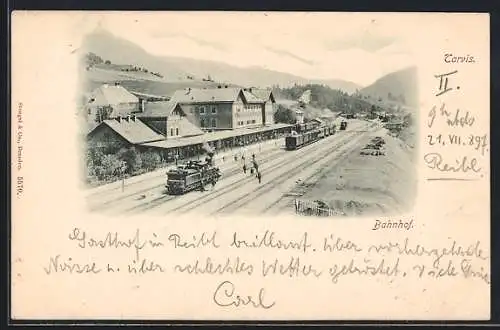 Tarvis.
II.
9h abds
21.VII.897.
Reibl
Stengel & Co., Dresden. 5570.
Bahnhof.
Gasthof in Reibl brillant. Über vorhergehende
Nässe u. über schlechtes Wetter getröstet. Viele Grüße
Carl